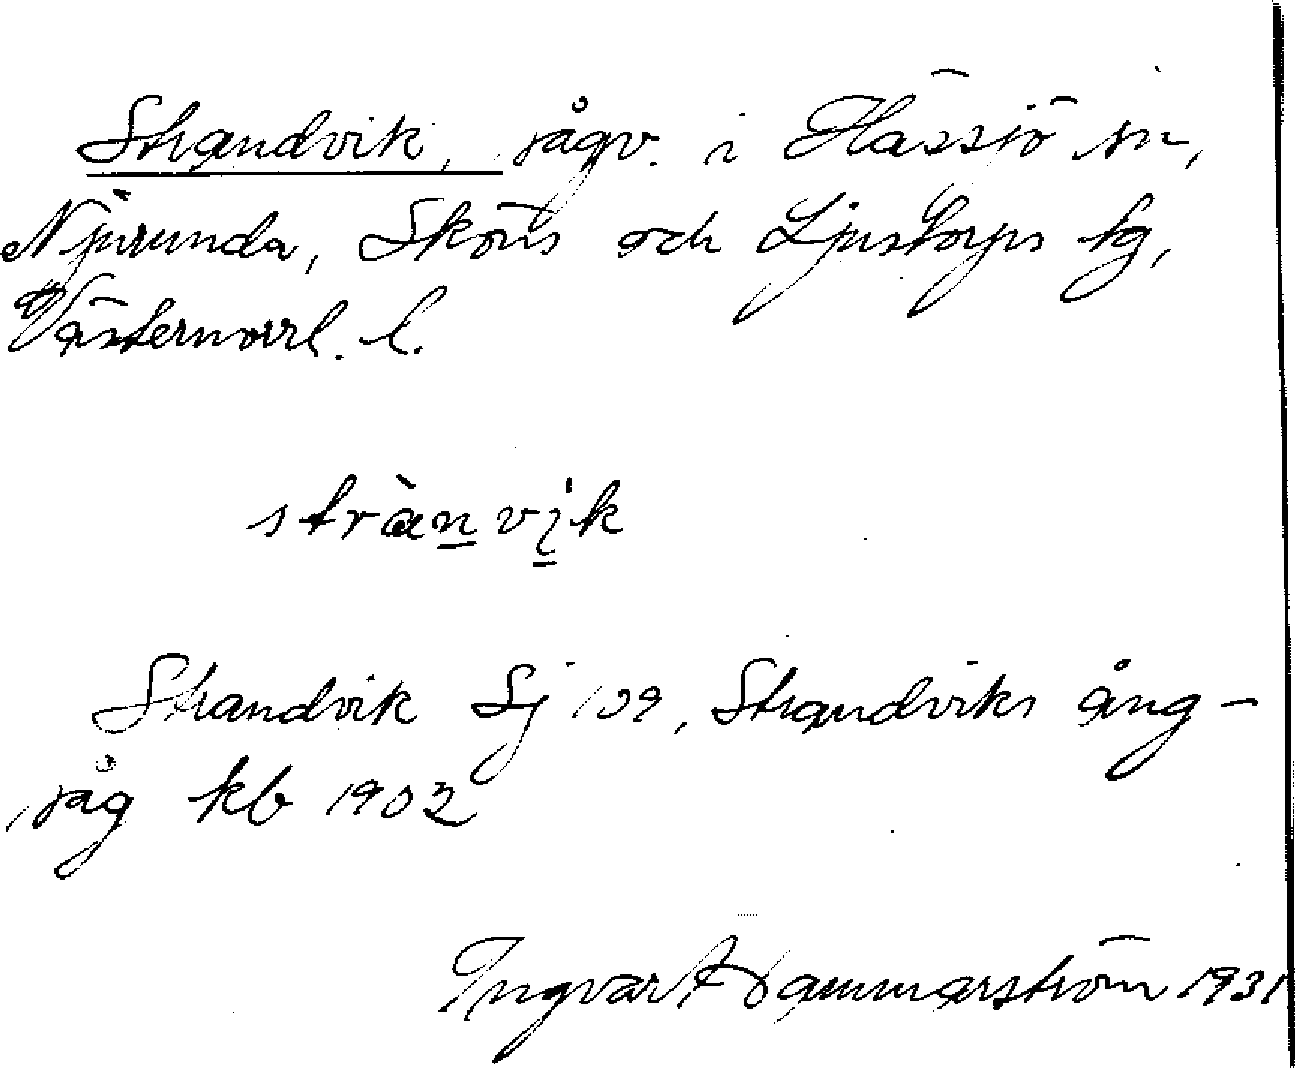 Strandvik, sågv. i Hässjö sn,
Njurunda, Sköns och Ljustorps tg,
Västernorrl. l.
strànvik
Strandvik Sj 109, Strandviks ång-
såg kb 1902
Ingvar Hammarström 1931